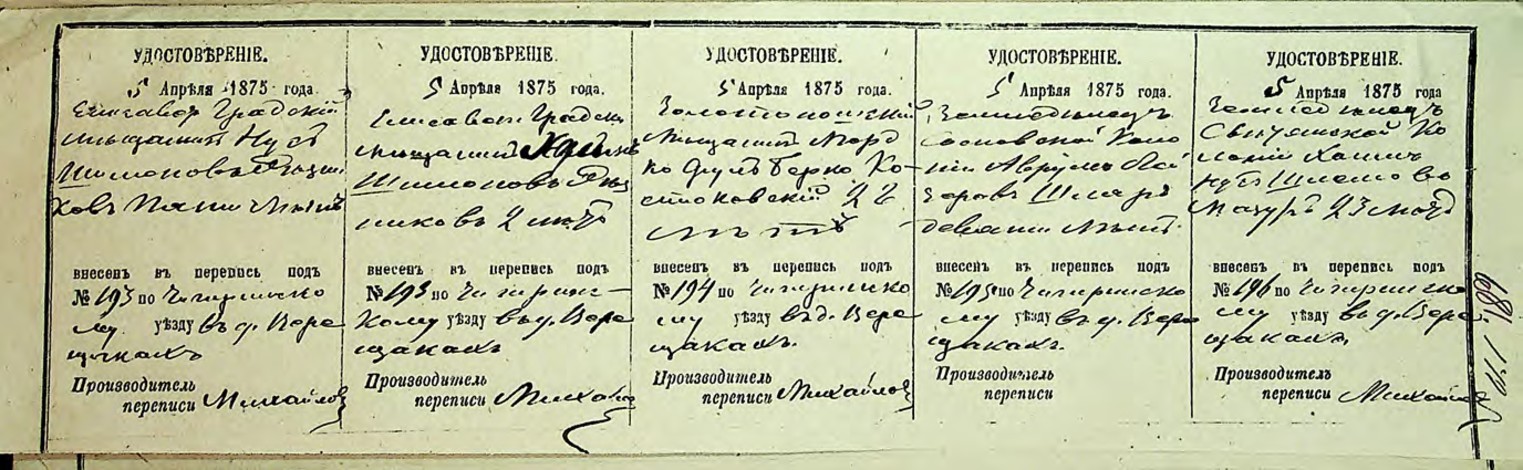 УДОСТОВѢРЕНІЕ.
5 Апрѣля 1875 года.
Елисаветградскій
мѣщанинъ Нусь
Шимоновъ
ковъ лѣтъ
внесенъ въ перепись подъ
№ 193 по Чигиринско
му уѣзду въ д. Вере
щакахъ
Производитель
переписи Михайлов
УДОСТОВѢРЕНІЕ.
5 Апрѣля 1875 года.
Елисаветградскі
мѣщанинъ
Шимоновъ
никовъ 2
внесенъ въ перепись подъ
№ 193 по Чигирин-
скому уѣзду въ д. Вере
щакахъ
Производитель
переписи Михай
УДОСТОВѢРЕНІЕ.
5 Апрѣля 1875 года.
Золотоношскій
мѣщанинъ Морд
ко Дувидъ Берко Ко-
стюковскій 22
лѣтъ
внесенъ въ перепись подъ
№ 194 по Чигиринско
му уѣзду въ д. Вере
щакахъ.
Производитель
переписи Михайлов
УДОСТОВѢРЕНІЕ.
5 Апрѣля 1875 года.
Землевладѣлецъ
Сосновской Коло
ніи Аврумъ Лей
зеровъ
девяти лѣтъ.
внесенъ въ перепись подъ
№ 195 по Чигиринско
му уѣзду въ д. Вере
щакахъ.
Производитель
переписи
УДОСТОВѢРЕНІЕ.
5 Апрѣля 1875 года
Ко
лоніи Хаимъ
Шлемовъ
Мазуръ 23 лѣтъ
внесенъ въ перепись подъ
№ 196 по Чигиринско
му уѣзду въ д. Вере
щакахъ.
Производитель
переписи Михайлов